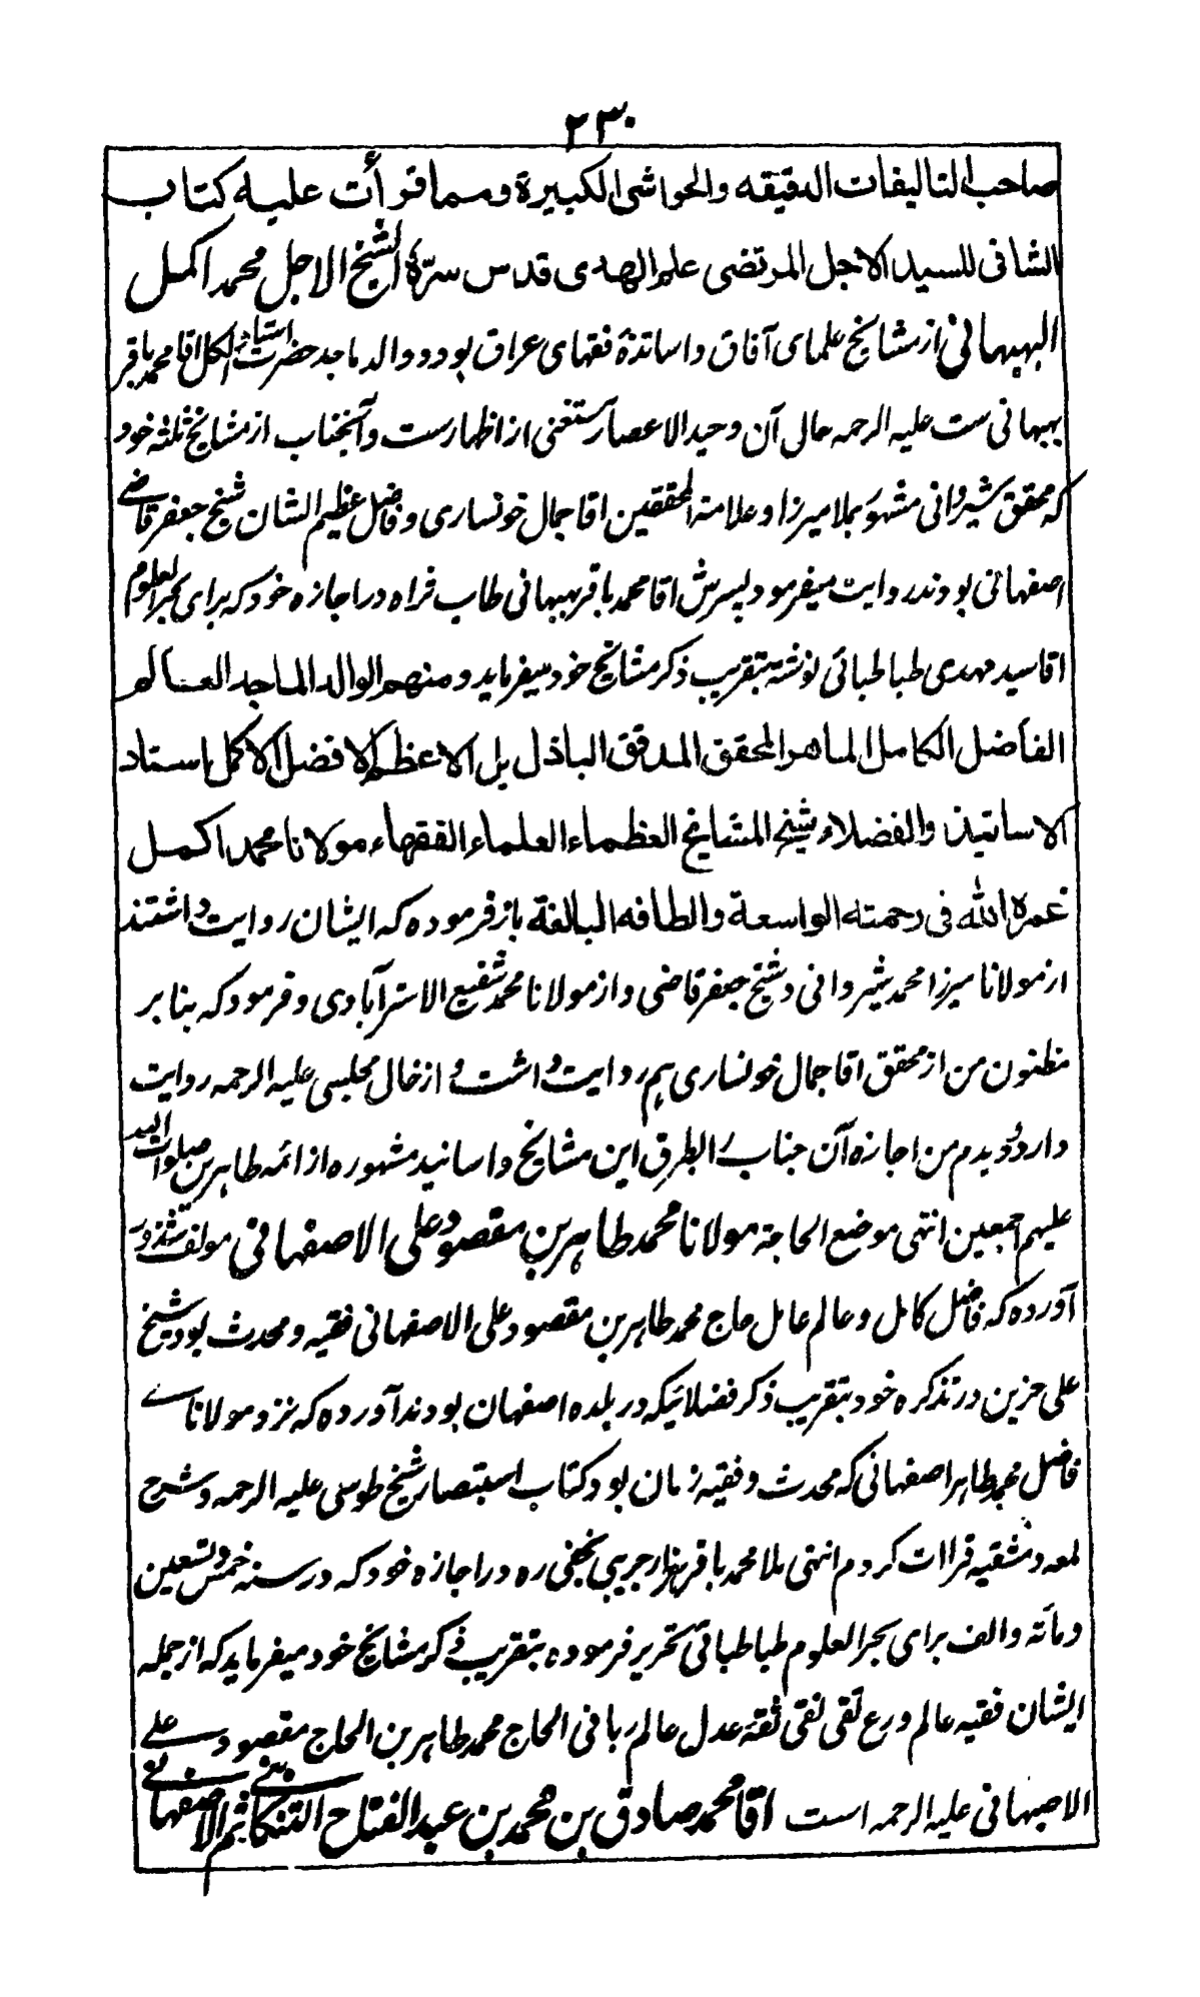 ۲۳۰
صاحب التاليفات الدقيقه والحواشى الكبيرة ومما قرأت عليه كتاب
الشافى للسيد الاجل المرتضى علم الهدى قدس سرّه الشيخ الاجل محمد اكمل
البهبهانی از مشایخ علمای آفاق و اساتذهٔ فقهای عراق بود و والد ماجد حضرت استاد الکل اقا محمد باقر
بهبهانی ست علیه الرحمه حال آن وحید الاعصار مستغنی از اظهارست و آنجناب از مشایخ ثلثه خود
که محقق شیروانی مشهور بملا میرزا و علامة المحققین اقا جمال خونساری و فاضل عظیم الشان شیخ جعفر قاضے
اصفهانی بودند روایت میفرمود پسرش اقا محمد باقر بهبهانی طاب ثراه در اجازه خود که برای بحر العلوم
اقا سید مهدی طباطبائی نوشته بتقریب ذکر مشایخ خود میفرماید ومنهم الوالد الماجد العالم
الفاضل الكامل الماهر المحقق المدقق الباذل بل الاعظم الافضل الاكمل استاد
الاساتيذ والفضلاء شيخ المشايخ العظماء العلماء الفقهاء مولانا محمد اكمل
غمره الله فى رحمته الواسعة والطافه البالغة باز فرموده که ایشان روایت داشتند
از مولانا میرزا محمد شیروانی و شیخ جعفر قاضی و از مولانا محمد شفیع الاسترآبادی و فرمود که بنا بر
مظنون من از محقق اقا جمال خونساری هم روایت داشت و از خال مجلسی علیه الرحمه روایت
دارد و دیدم من اجازه آن جناب را بطرق این مشایخ و اسانید مشهوره از ائمه طاهرین صلوات الله
علیهم اجمعین انتهی موضع الحاجة مولانا محمد طاهر بن مقصود علی الاصفهانی مولف شذور
آورده که فاضل کامل و عالم عامل حاج محمد طاهر بن مقصود علی الاصفهانی فقیه و محدث بود شیخ
علی حزین در تذکره خود بتقریب ذکر فضلائیکه در بلده اصفهان بودند آورده که نزد مولانائے
فاضل محمد طاهر اصفهانی که محدث و فقیه زمان بود کتاب استبصار شیخ طوسی علیه الرحمه و شرح
لمعه دمشقیه قراات کردم انتهی ملا محمد باقر هزارجریبی نجفی ره در اجازه خود که در سنه خمس و تسعین
و مأته و الف برای بحر العلوم طباطبائی تحریر فرموده بتقریب ذکر مشایخ خود میفرماید که از جمله
ایشان فقیه عالم ورع تقی نقی ثقه عدل عالم ربانی الحاج محمد طاهر بن الحاج مقصود علے
الاصبهانی علیه الرحمه است اقا محمد صادق بن محمد بن عبد الفتاح التنکابنے ثم الاصفهانے